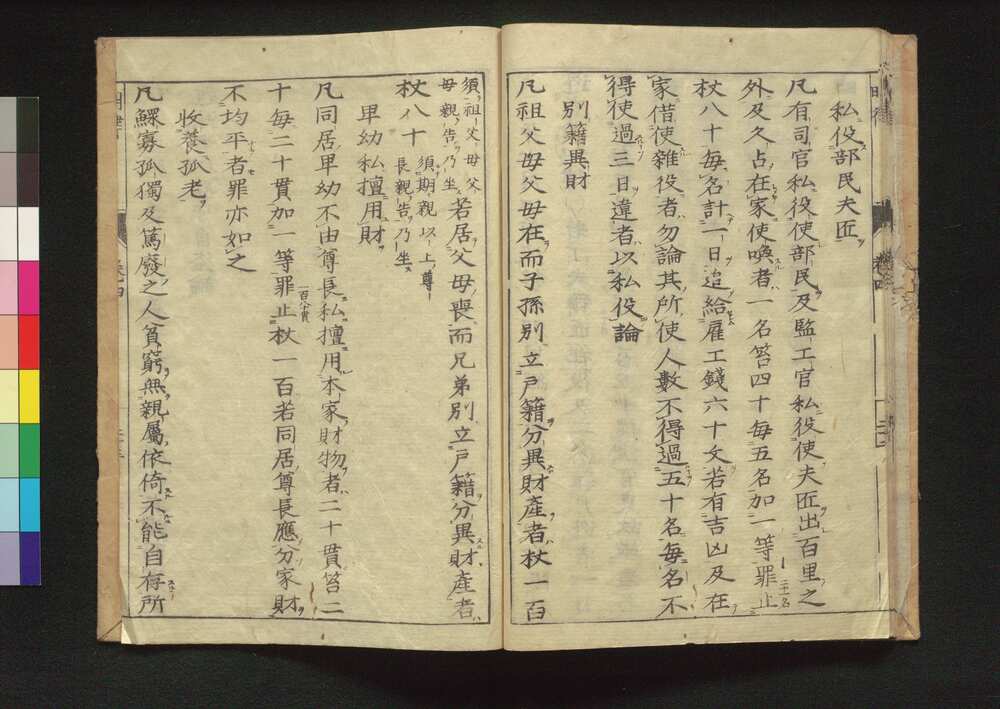 私役部民夫匠
凡有司官私役使部民及監工官私役使夫匠出百里之
外及久占在家使喚者一名笞四十每五名加一等罪止二十名
杖八十每名計一日追給雇工錢六十文若有吉凶及在
家借使雜役者勿論其所使人數不得過五十名每名不
得使過三日違者以私役論
別籍異財
凡祖父母父母在而子孫別立戸籍分異財產者杖一百
須祖父母父
母親告乃坐若居父母喪而兄弟別立戸籍分異財產者
杖八十須期親以上尊
長親告乃坐
卑幼私擅用財
凡同居卑幼不由尊長私擅用本家財物者二十貫笞二
十每二十貫加一等罪止杖一百一百八十貫若同居尊長應分家財
不均平者罪亦如之
收養孤老
凡鰥寡孤獨及篤廢之人貧窮無親屬依倚不能自存所